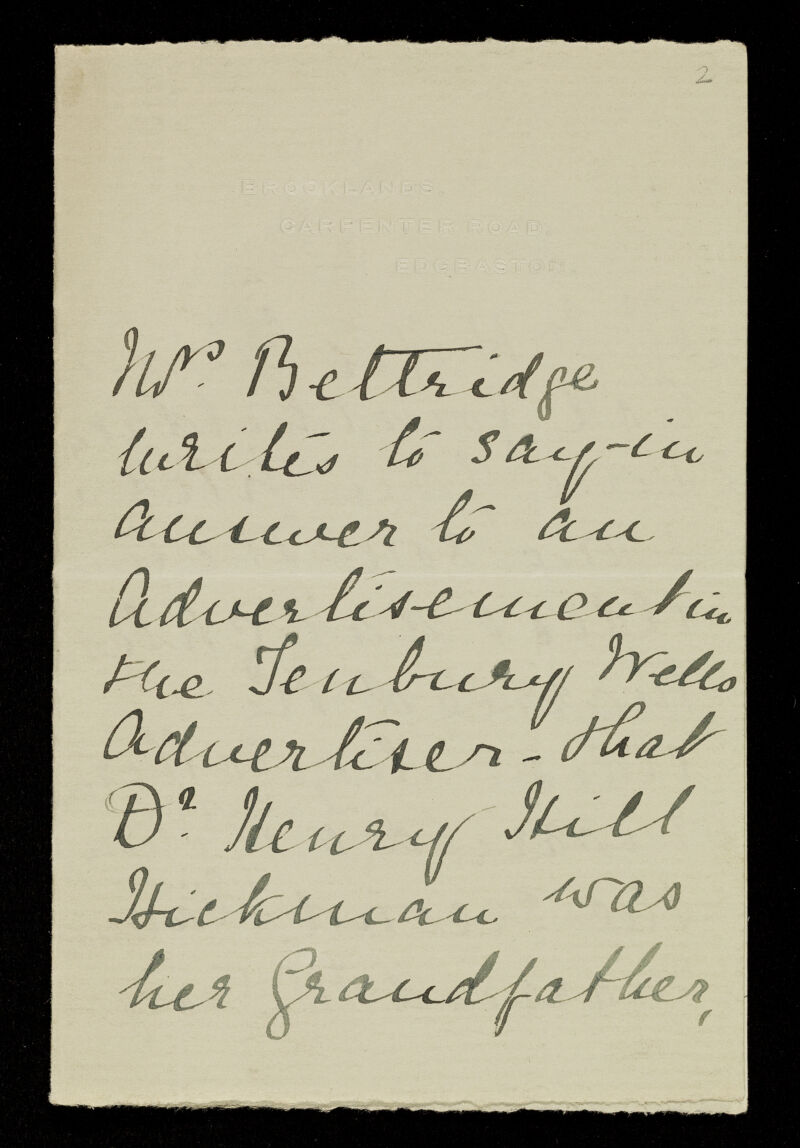 2
BROOKLANDS.
CARPENTER ROAD.
EDGBASTON.
Mrs. Bettridge
writes to say - in
answer to an
Advertisement in
the Tenbury Wells
Advertiser - that
Dr. Henry Hill
Hickman was
her Grandfather,